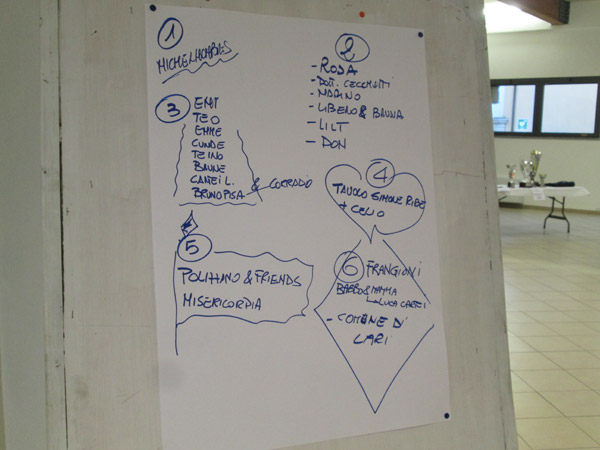 1
MICHELHOMBRES
2
- ROSA
- DOTT. CECCHETTI
- MARINO
- LIBERO & BRUNA
- LILT
- DON
3
TEO
EMME
CUNDE
TEINO
BRUNOPISA & CORRADO
4
TAVOLO SIMONE RIBE
+ CELIO
5
POLITIANO & FRIENDS
MISERICORDIA
6 FRANGIONI
BABBO & MAMMA
LUCA CARLI
- COMUNE DI
LARI